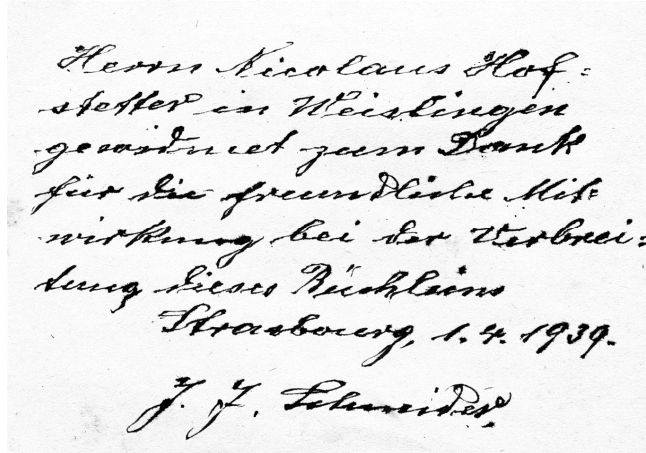 Herrn Nicolaus Hof=
stetter in Weislingen
gewidmet zum Dank
für die freundliche Mit=
wirkung bei der Verbrei=
tung dieses Büchleins
Strasbourg, 1.4.1939.
J. J. Schneider.